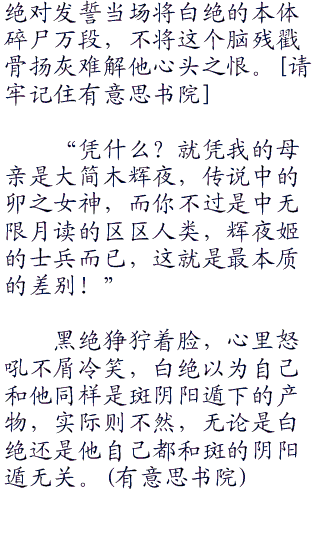 绝对发誓当场将白绝的本体
碎尸万段，不将这个脑残戳
骨扬灰难解他心头之恨。[请
牢记住有意思书院]
“凭什么？就凭我的母
亲是大简木辉夜，传说中的
卯之女神，而你不过是中无
限月读的区区人类，辉夜姬
的士兵而已，这就是最本质
的差别！”
黑绝狰狞着脸，心里怒
吼不屑冷笑，白绝以为自己
和他同样是斑阴阳遁下的产
物，实际则不然，无论是白
绝还是他自己都和斑的阴阳
遁无关。(有意思书院)